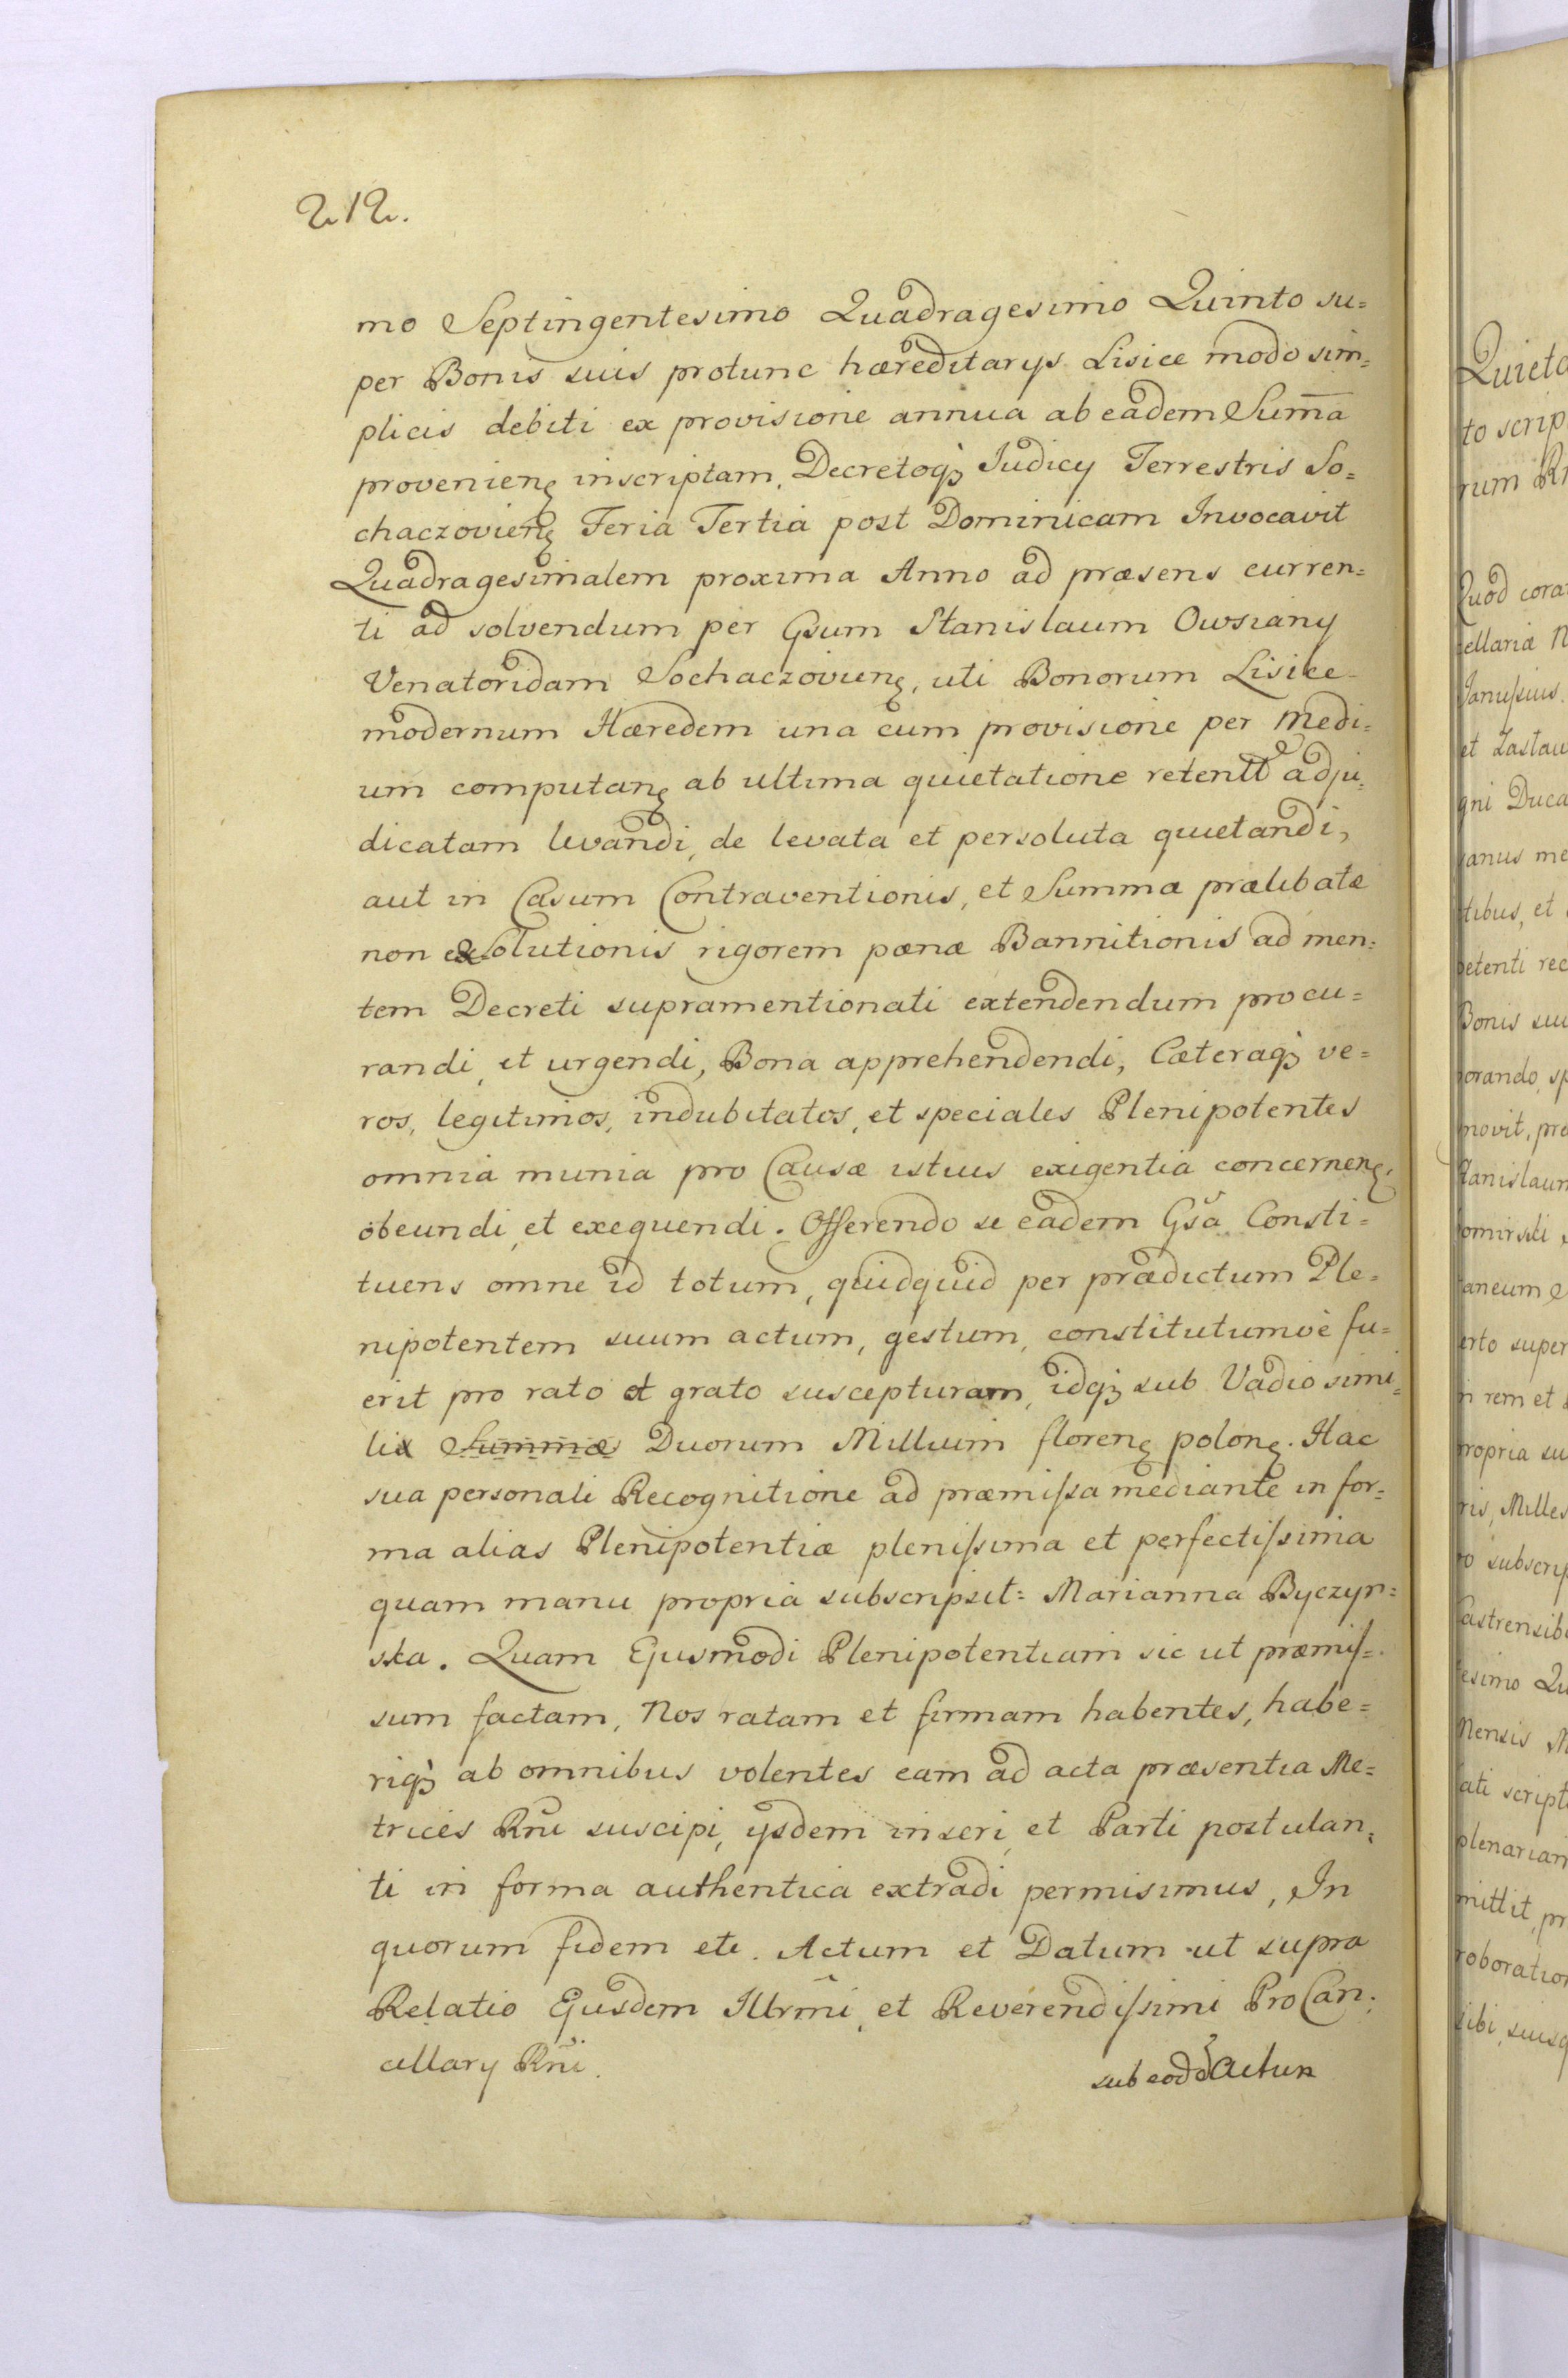 212.
mo Septingentesimo Quadragesimo Quinto su=
per Bonis suis protunc hæreditarys Lisice modo sim=
plicis debiti ex provisione annua ab eadem Sum̄a
provenienȩ inscriptam, Decretoq́ Judicy Terrestris So=
chaczovienȩ Feria Tertia post Dominicam Invocavit
Quadragesimalem proxima Anno ad præsens curren=
ti ad solvendum per Gsum Stanislaum Owsiany
Venatoridam Sochaczovienȩ, uti Bonorum Lisice
modernum Hæredem una cum provisione per Medi=
um computanȩ ab ultima quietatione retentt adju=
dicatam levandi, de levata et persoluta quietandi,
aut in Casum Contraventionis, et Summæ prælibatæ
non exsolutionis rigorem pœnæ Bannitionis ad men=
tem Decreti supramentionati extendendum procu=
randi, et urgendi, Bona apprehendendi, Cæteraq́ ve=
ros, legitimos, indubitatos, et speciales Plenipotentes
omnia munia pro Causæ istius exigentia concernenȩ,
obeundi, et exequendi. Offerendo se eadem Gsa Consti=
tuens omne id totum, quidquid per prædictum Ple=
nipotentem suum actum, gestum, constitutumve fu=
erit pro rato et grato suscepturam, idq́ sub Vadio simi=
lis Summæ Duorum Millium florenȩ polonȩ. Hac
sua personali Recognitione ad præmissa mediante in for=
ma alias Plenipotentiæ plenissima et perfectissima
quam manu propria subscripsit: Marianna Byczyn=
ska. Quam Ejusmodi Plenipotentiam sic ut præmis=
sum factam, Nos ratam et firmam habentes, habe=
riq́ ab omnibus volentes eam ad acta præsentia Me=
trices Rñi suscipi, ysdem inseri, et Parti postulan=
ti in forma authentica extradi permisimus, In
quorum fidem etc. Actum et Datum ut supra
Relatio Ejusdem Illrm̃i, et Reverendissimi ProCan=
cellary Rñi.
sub eod Actun
Quieta
to scrip
rum
Quod cora
cellaria
et Zastaw
gni Duca
anus me
tibus, et
petenti rec
Bonis sui
orando, sp
movit, pro
Stanislaum
aneum
erto super
n rem et
propria su
ris, Milles
o subscrip
Castrensib
esimo Qu
Mensis M
ati scripti
plenariam
mittit, pr
roboration
sibi, suisq